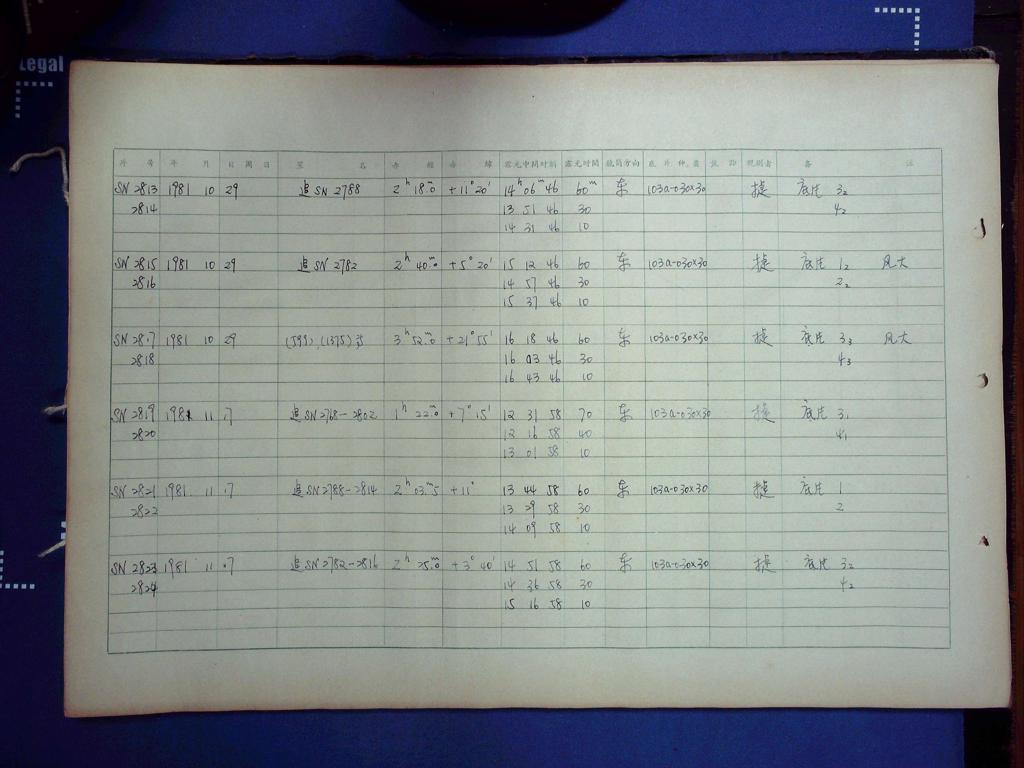 Legal
片 号 年 月 日 星 名 赤 經 赤 緯 露光中間时刻 露光時間 鏡筒方向 底 片 种 类 焦 距 观测者 备 註
SN 2813 1981 10 29 追 SN 2788 2h 18m.0 +11° 20' 14h 06m 46 60m 东 103a-O 30×30 捷 底片 3₂
2814 13 51 46 30 4₂
14 31 46 10
SN 2815 1981 10 29 追 SN 2782 2h 40m.0 +5° 20' 15 12 46 60 东 103a-O 30×30 捷 底片 1₂ 风大
2816 14 57 46 30 2₂
15 37 46 10
SN 2817 1981 10 29 (599), (1375) 3h 52m.0 +21° 55' 16 18 46 60 东 103a-O 30×30 捷 底片 3₃ 风大
2818 16 03 46 30 4₃
16 43 46 10
SN 2819 1981 11 .7 追 SN 2768-2802 1h 22m.0 +7° 15' 12 31 58 70 东 103a-O 30×30 捷 底片 3₁
2820 12 16 58 40 4₁
13 01 58 10
SN 2821 1981. 11 .7 追 SN 2788-2814 2h 03m.5 +11° 13 44 58 60 东 103a-O 30×30 捷 底片 1
2822 13 29 58 30 2
14 09 58 10
SN 2823 1981 11 .7 追 SN 2782-2816 2h 25m.0 +3° 40' 14 51 58 60 东 103a-O 30×30 捷 底片 3₂
2824 14 36 58 30 4₂
15 16 58 10